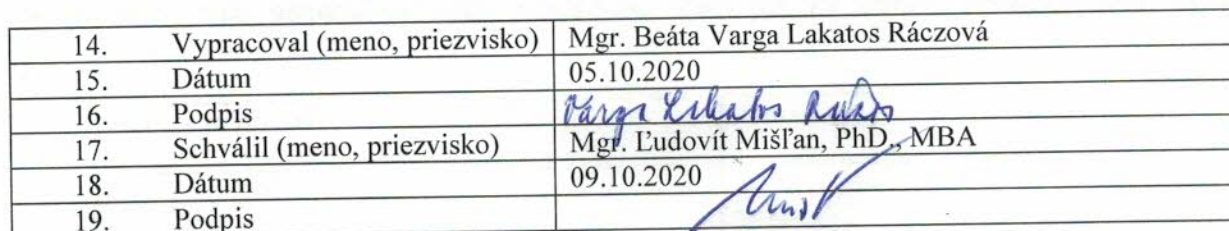 14. Vypracoval (meno, priezvisko) Mgr. Beáta Varga Lakatos Ráczová
15. Dátum 05.10.2020
16. Podpis Varga Lakatos
17. Schválil (meno, priezvisko) Mgr. Ľudovít Mišľan, PhD., MBA
18. Dátum 09.10.2020
19. Podpis